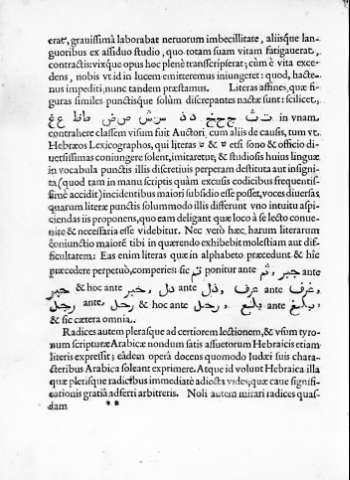 erat, grauissimâ laborabat neruorum imbecillitate, aliisque lan-
guoribus ex assiduo studio, quo totam suam vitam fatigauerat,
contractis: vixque opus hoc plenè transscripserat; cùm è vita exce-
dens, nobis vt id in lucem emitteremus iniungeret: quod, hacte-
nus impediti, nunc tandem præstamus. Literas affines, quæ fi-
guras similes punctisque solùm discrepantes nactæ sunt: scilicet,
in vnam
contrahere classem visum fuit Auctori, cum aliis de causis, tum vt
Hebræos Lexicographos, qui literas & etsi sono & officio di-
uersissimas coniungere solent, imitaretur; & studiosis huius linguæ
in vocabula punctis illis discretiuis perperam destituta aut insigni-
ta (quod tam in manu scriptis quàm excusis codicibus frequentis-
simè accidit) incidentibus maiori subsidio esse posset, voces diuersas
quarum literæ punctis solummodo illis differunt vno intuitu aspi-
ciendas iis proponens, quo eam deligant quæ loco à se lecto conue-
nite & necessaria esse videbitur. Nec verò hæc harum literarum
côniunctio maiorê tibi in quærendo exhibebit molestiam aut dif-
ficultatem: Eas enim literas quæ in alphabeto præcedunt & hîc
præcedere perpetuò, comperies: sic تم ponitur ante ثم, جبر ante
خبر & hoc ante خير, دل ante ذل, عرف ante غرف,
رجل ante رحل & hoc ante رخل, بلع ante بلغ,
& sic cætera omnia.
Radices autem plerasque ad certiorem lectionem, & vsum tyro-
num scripturæ Arabicæ nondum satis assuetorum Hebraicis etiam
literis expressit; eâdem operâ docens quomodo Iudæi suis chara-
cteribus Arabica soleant exprimere. Atque id volunt Hebraica illa
quæ plerisque radicibus immediatè adiecta vides, quæ caue signifi-
cationis gratiâ adserti arbitreris. Noli autem mirari radices quas-
dam